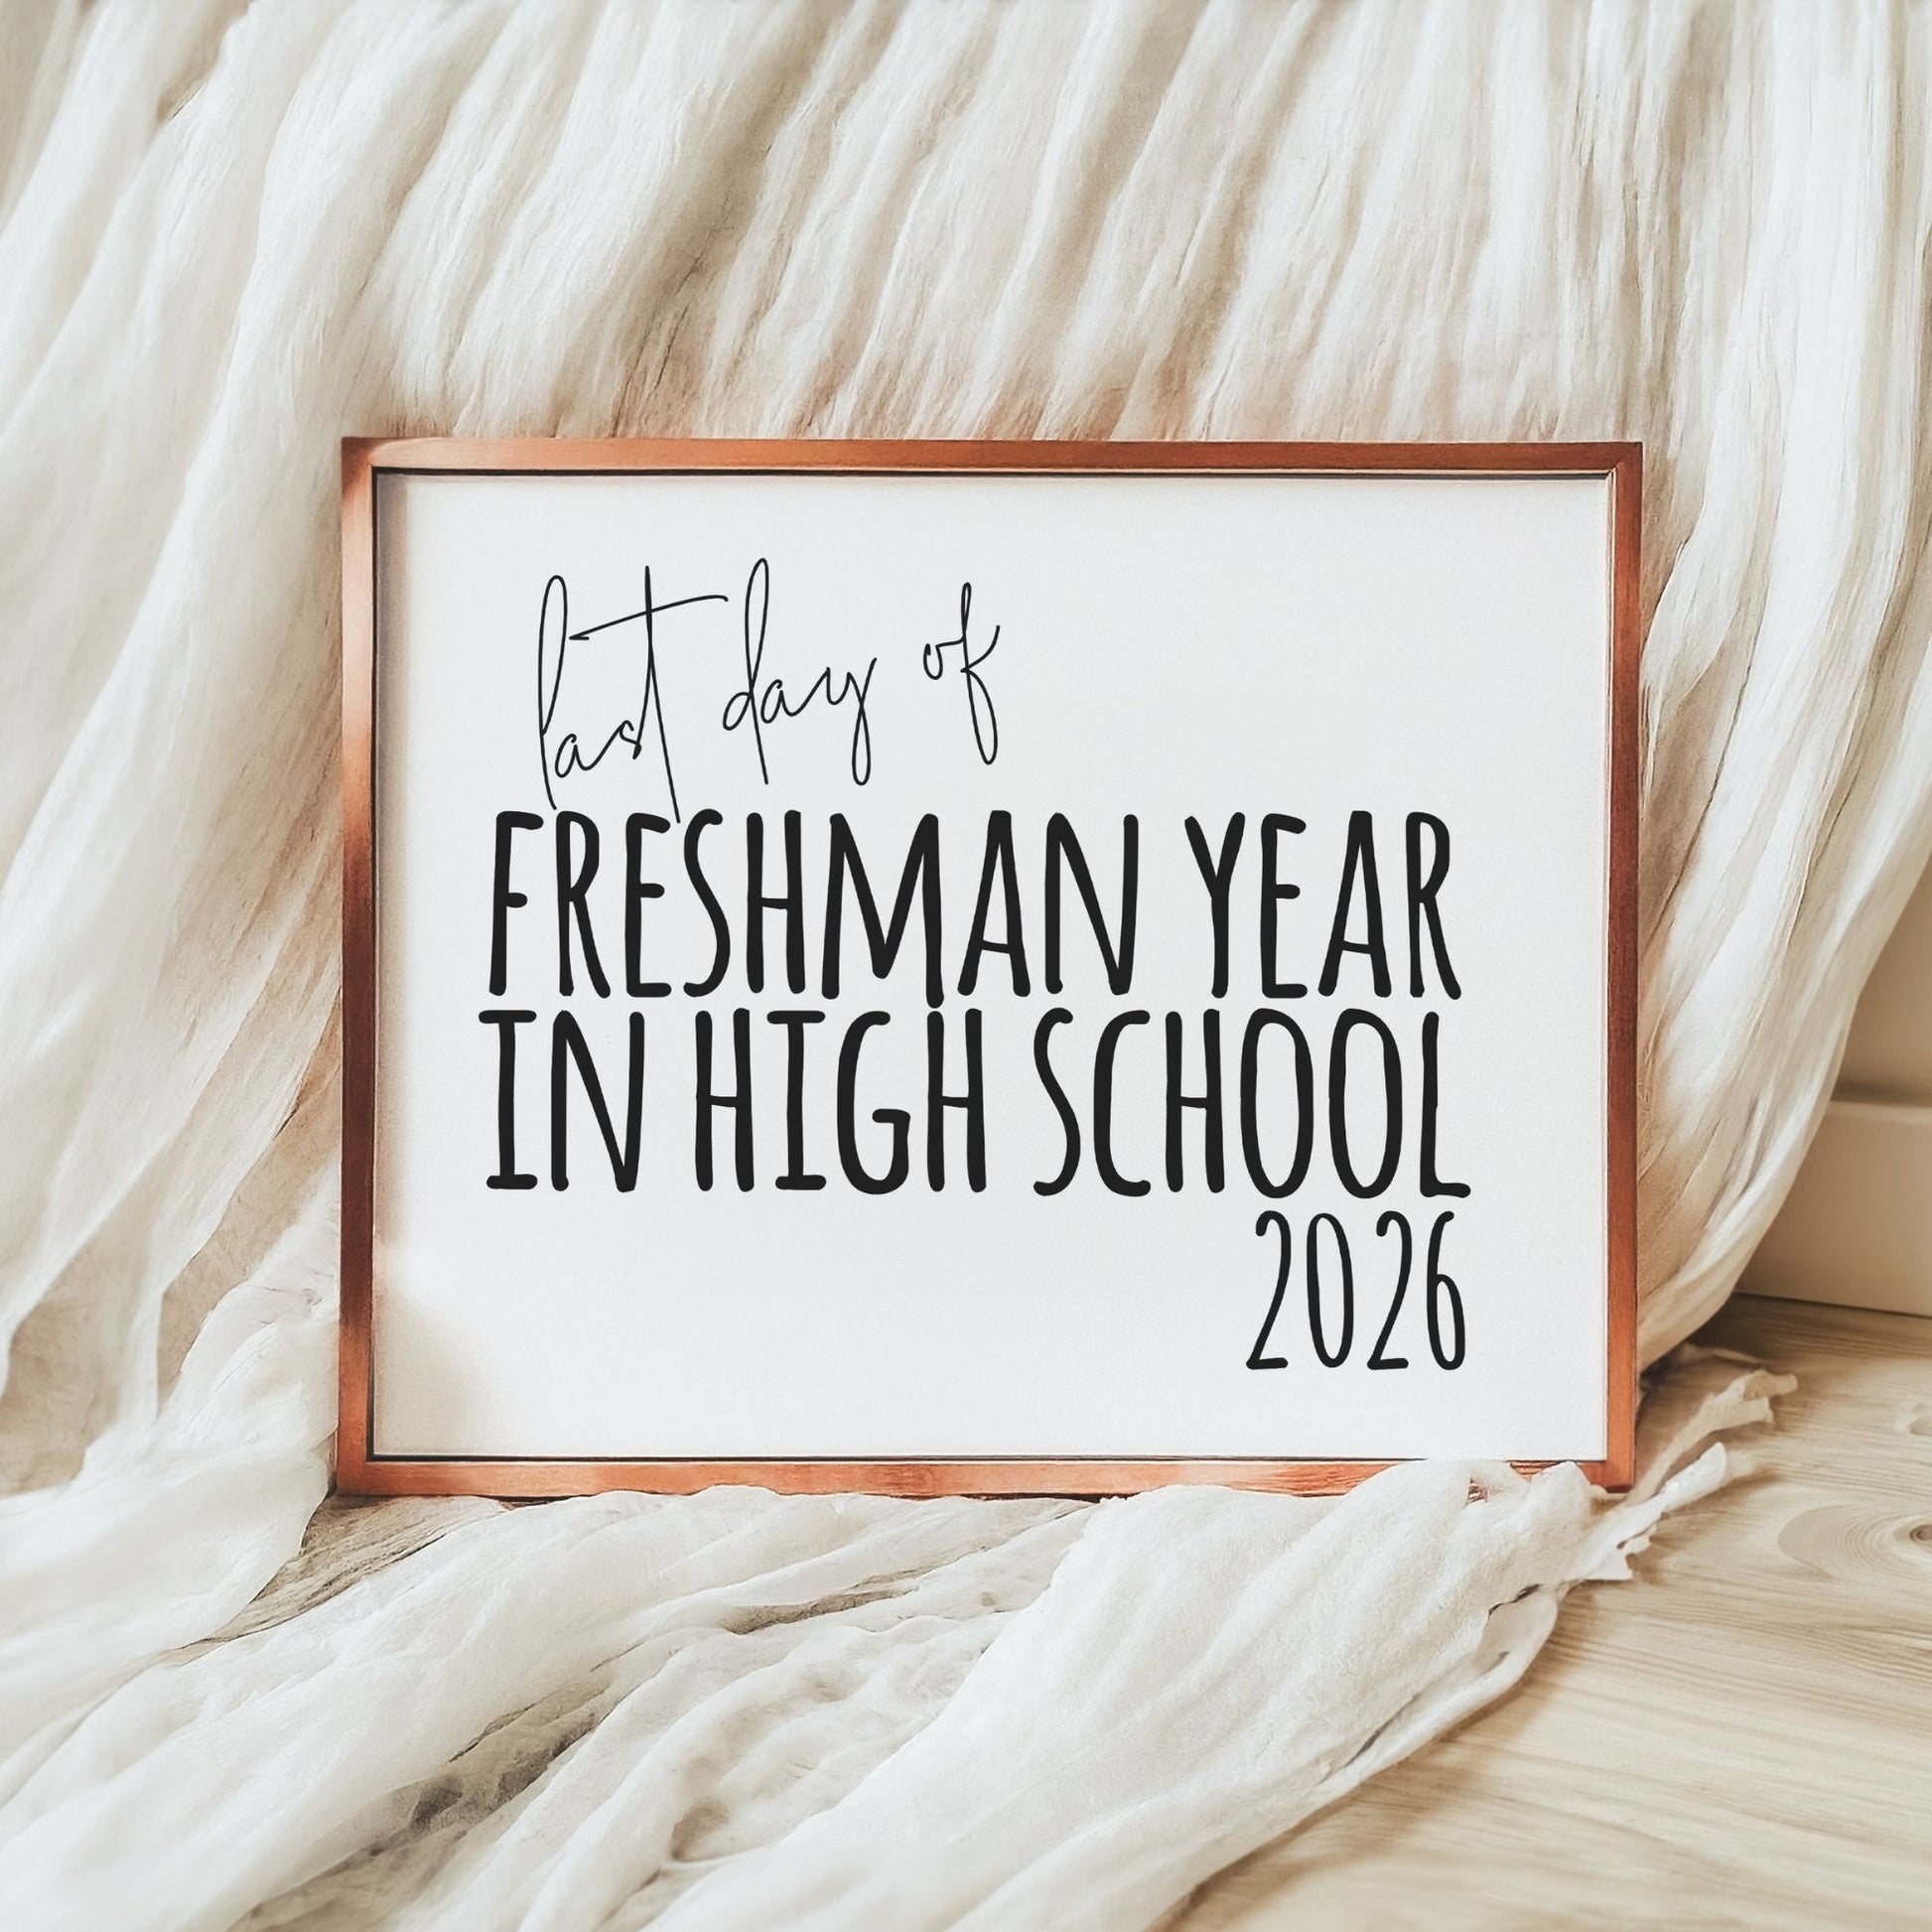 last day of
FRESHMAN YEAR
IN HIGH SCHOOL
2026